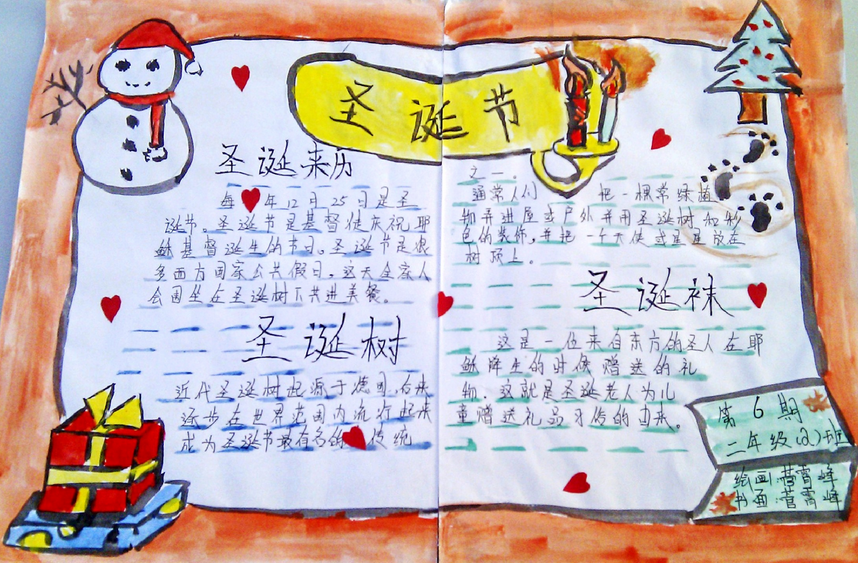 圣诞节
圣诞来历
每年12月25日是圣
诞节。圣诞节是基督徒庆祝耶
稣基督诞生的节日。圣诞节是很
多西方国家公共假日，这天全家人
会围坐在圣诞树下共进美餐。
圣诞树
近代圣诞树起源于德国，后来
逐步在世界范围内流行起来
成为圣诞节最有名的传统
之一。
通常人们把一棵常绿植
物弄进屋或户外并用圣诞树和彩
色的装饰，并把一个天使或星星放在
树顶上。
圣诞袜
这是一位来自东方的圣人在耶
稣降生的时候赠送的礼
物，这就是圣诞老人为儿
童赠送礼品习俗的由来。
第6期
二年级(2)班
绘画:营霄峰
书画:营霄峰